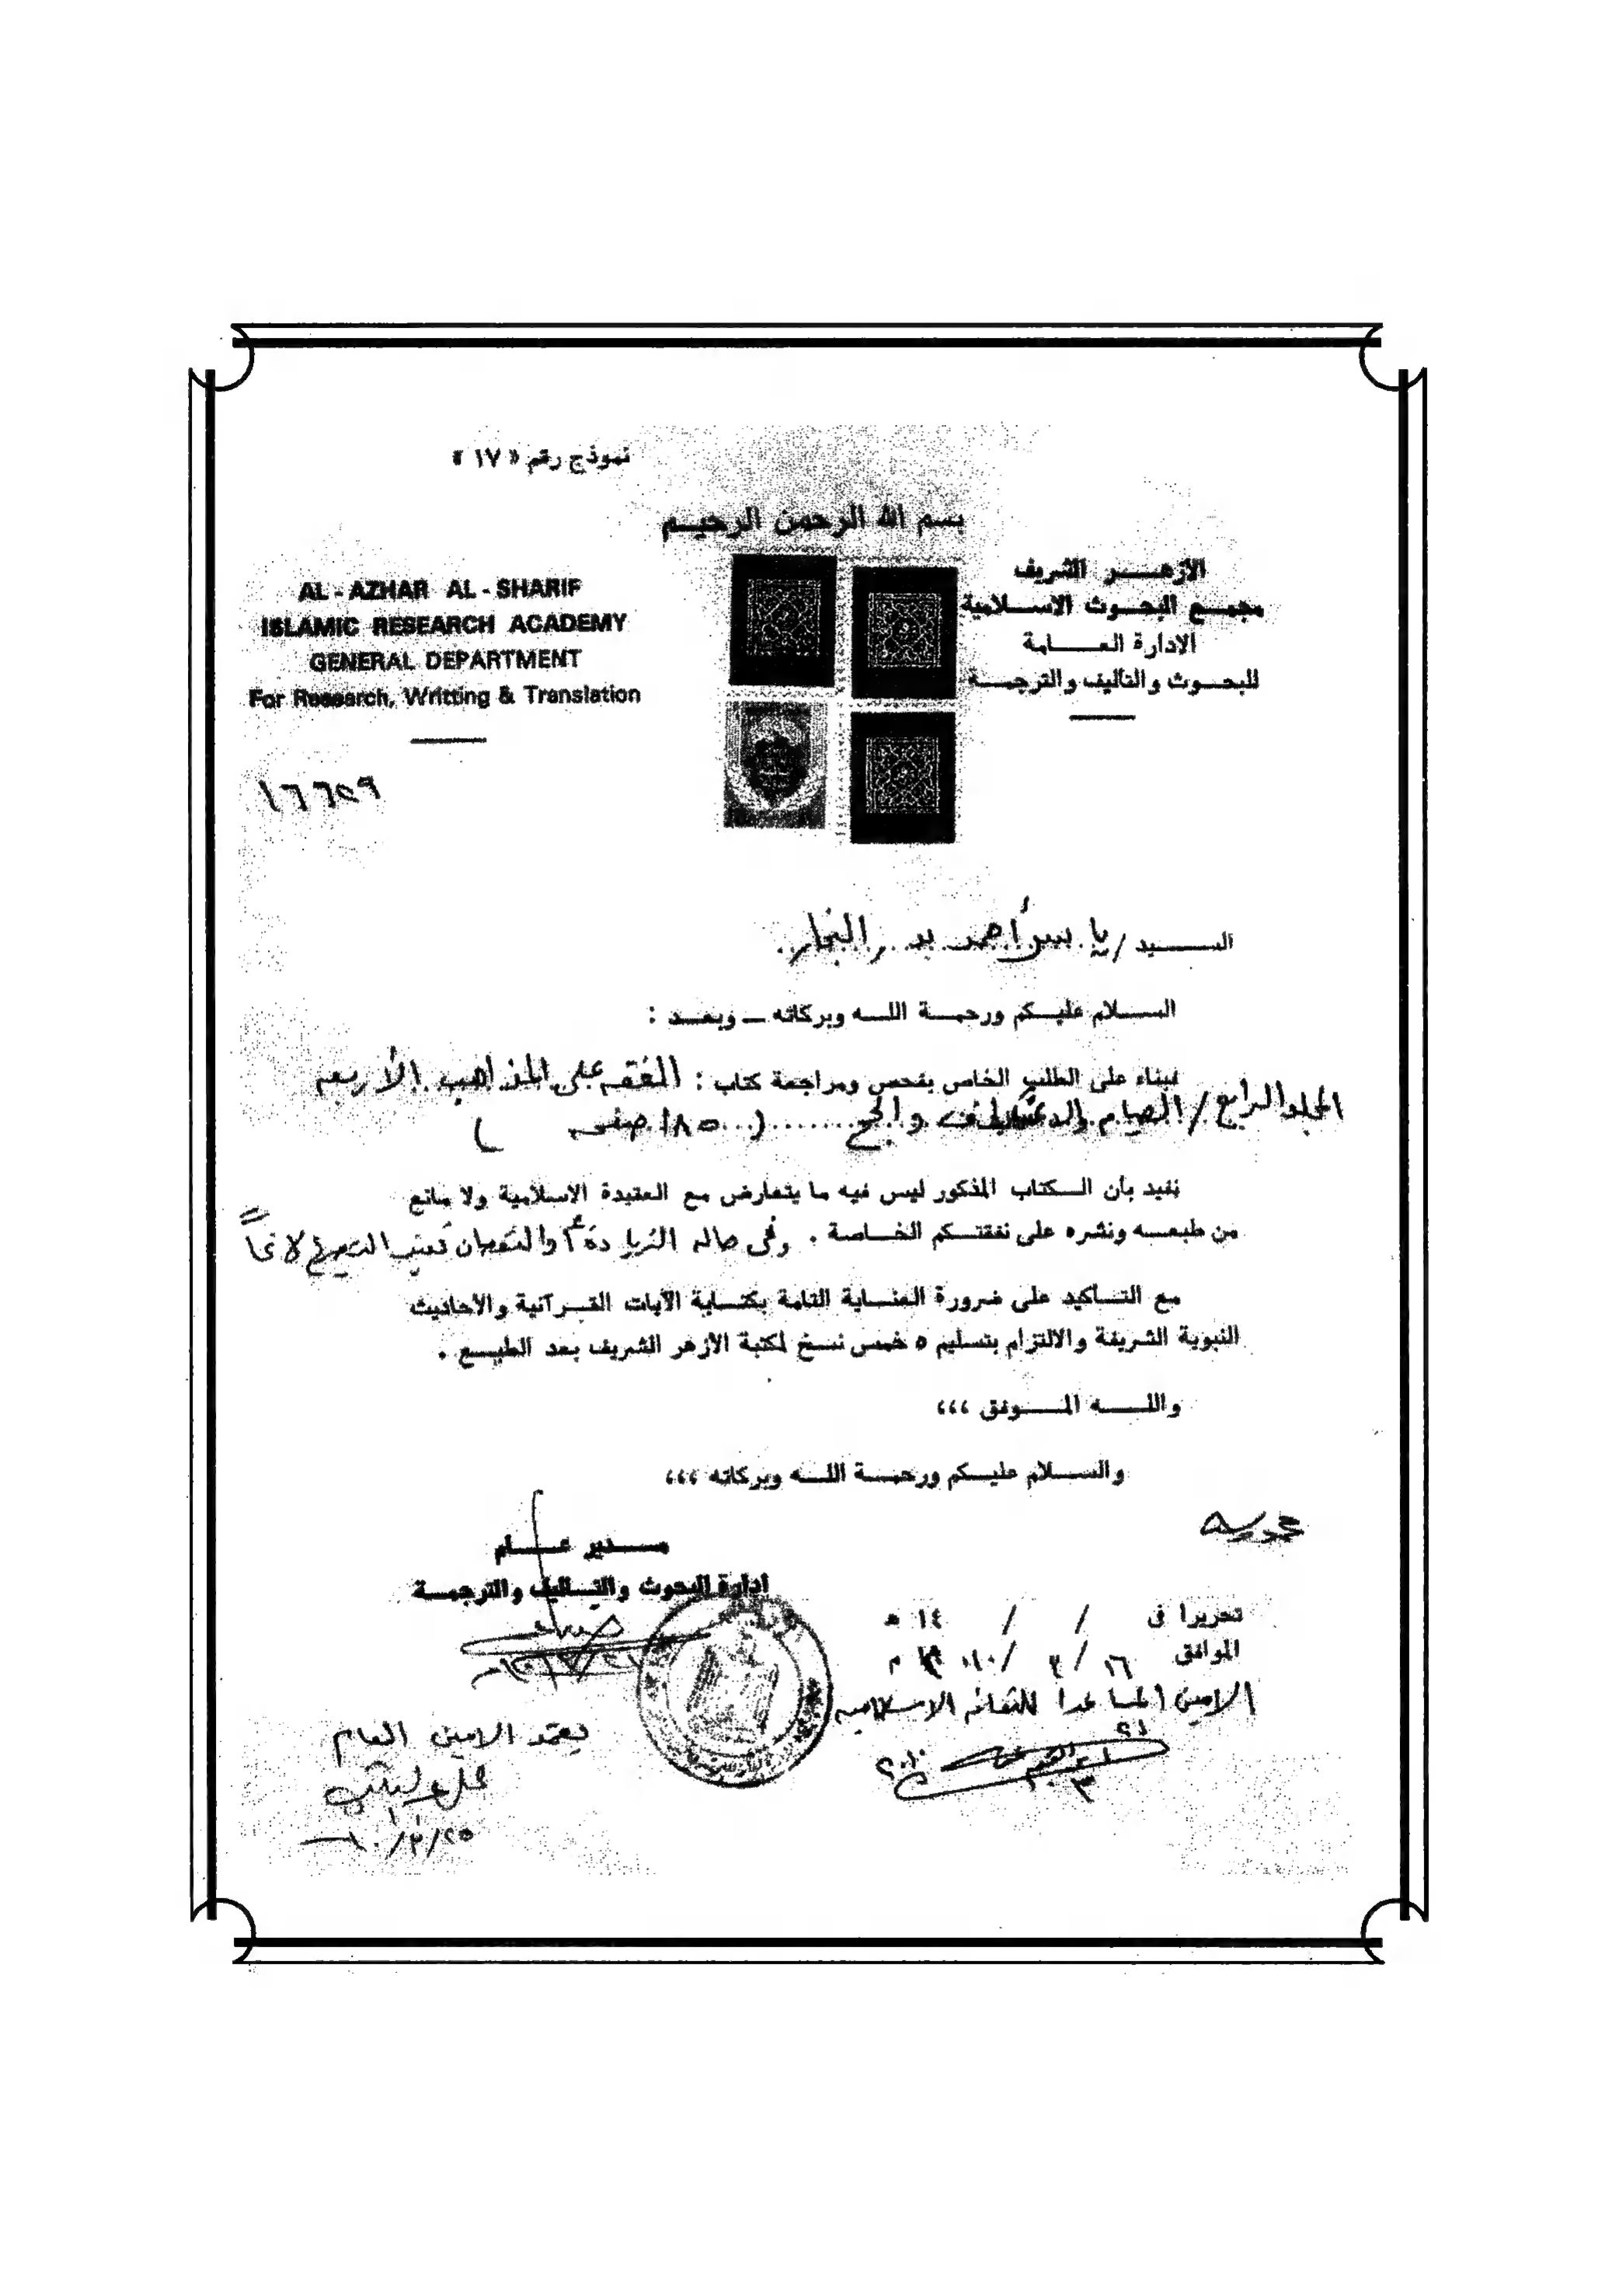 نموذج رقم « ١٧ »
بسم الله الرحمن الرحيم
الأزهر الشريف
مجمع البحوث الاسلامية
الادارة العامة
للبحوث والتأليف والترجمة
AL - AZHAR AL - SHARIF
ISLAMIC RESEARCH ACADEMY
GENERAL DEPARTMENT
For Research, Writting & Translation
١٦٦٥٩
السيد / ياسر أحمد بدر النجار
السلام عليكم ورحمة الله وبركاته ــ وبعد :
فبناء على الطلب الخاص بفحص ومراجعة كتاب : الفقه على المذاهب الأربعة
المجلد الرابع / الصيام والاعتكاف والحج ( ١٨٥ صفحة )
نفيد بأن الكتاب المذكور ليس فيه ما يتعارض مع العقيدة الاسلامية ولا مانع
من طبعه ونشره على نفقتكم الخاصة . وفى حالة الزيادة أو النقصان يعتبر التصريح لاغياً
مع التأكيد على ضرورة العناية التامة بكتابة الآيات القرآنية والأحاديث
النبوية الشريفة والالتزام بتسليم ٥ خمس نسخ لمكتبة الأزهر الشريف بعد الطبع .
والله الموفق ،،،
والسلام عليكم ورحمة الله وبركاته ،،،
مدير عام
ادارة البحوث والتأليف والترجمة
تحريرا فى / / ١٤ هـ
الموافق ١٦ / ٣ / ٢٠١٠ م
الامين المساعد للثقافة الاسلامية
يعتمد الامين العام
٢٥/٣/٢٠١٠